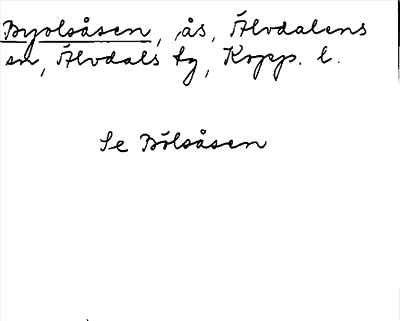 Byolsåsen, ås, Älvdalens
sn, Älvdals tg, Kopp. l.
Se Bölsåsen